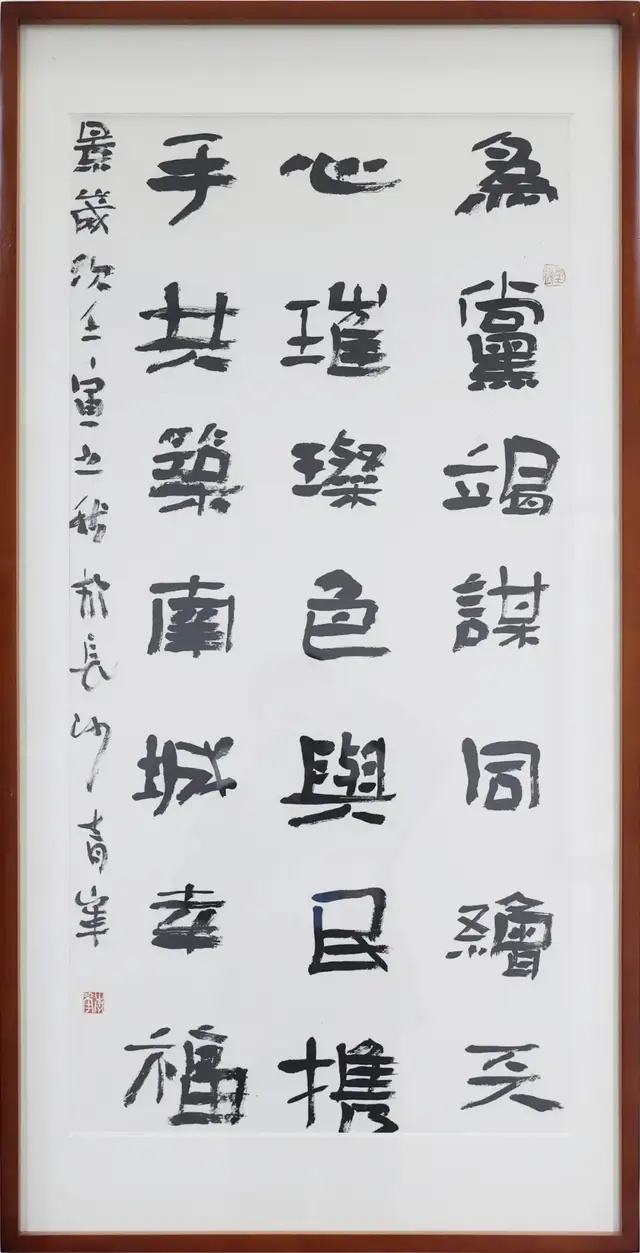 為黨竭謀同繪天
心璀璨色與民攜
手共築南城幸福
景歲次壬寅之秋於長沙青峯